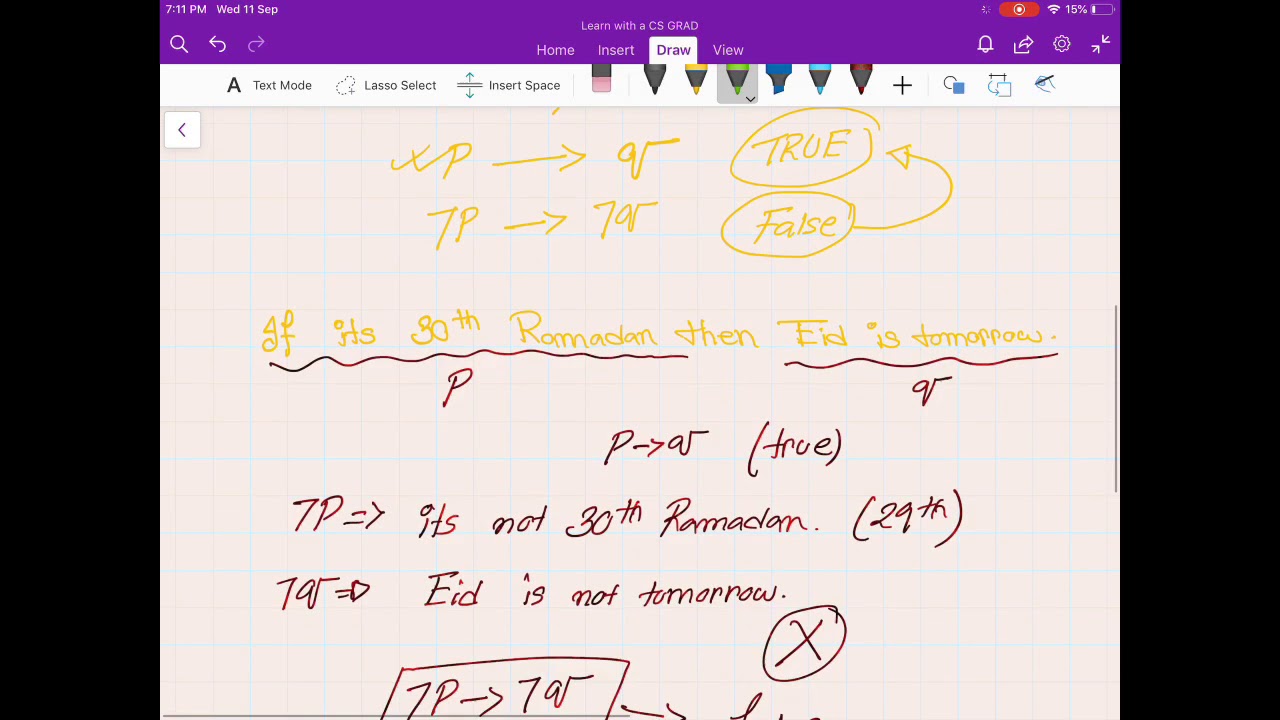 7:11 PM Wed 11 Sep
15%
Learn with a CS GRAD
Home Insert Draw View
A Text Mode Lasso Select Insert Space
P → q TRUE
7P → 7q False
If its 30th Ramadan then Eid is tomorrow.
P q
P→q (true)
7P => its not 30th Ramadan. (29th)
7q => Eid is not tomorrow.
X
7P → 7q →